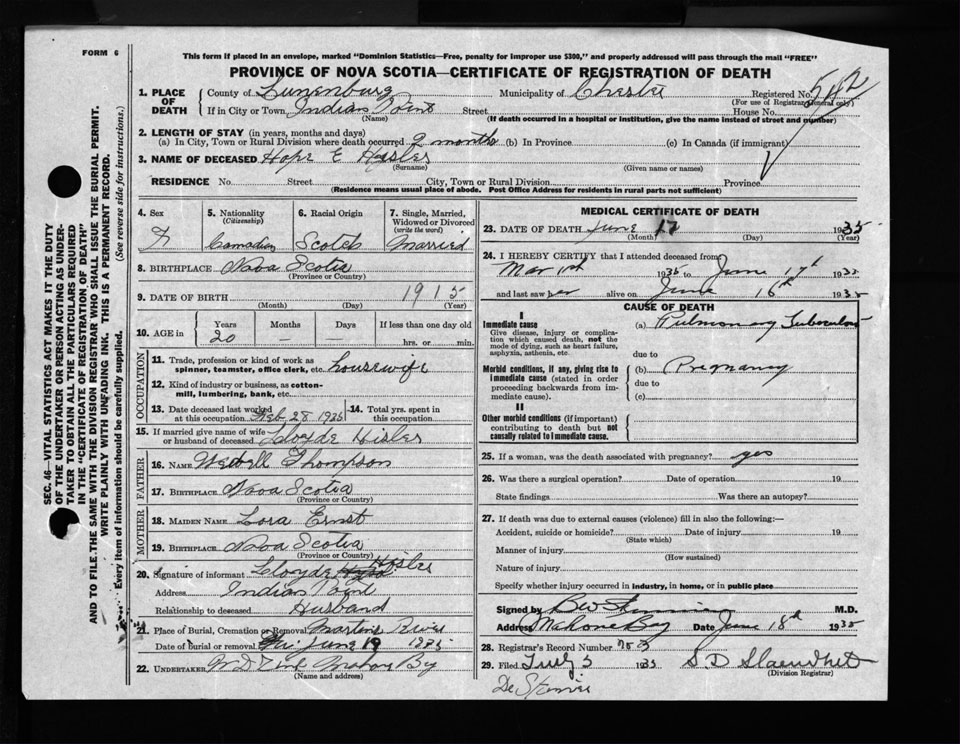 FORM 6
This form if placed in an envelope, marked "Dominion Statistics—Free, penalty for improper use $300," and properly addressed will pass through the mail "FREE"
PROVINCE OF NOVA SCOTIA—CERTIFICATE OF REGISTRATION OF DEATH
1. PLACE OF DEATH
County of Lunenburg Municipality of Chester Registered No. 542
(For use of Registrar General only)
If in City or Town Indian Point Street House No.
(Name) (If death occurred in a hospital or institution, give the name instead of street and number)
2. LENGTH OF STAY (in years, months and days)
(a) In City, Town or Rural Division where death occurred 2 months (b) In Province (c) In Canada (if immigrant)
3. NAME OF DECEASED Hope E Hisler
(Surname) (Given name or names)
RESIDENCE No. Street City, Town or Rural Division Province
(Residence means usual place of abode. Post Office Address for residents in rural parts not sufficient)
4. Sex
F
5. Nationality
(Citizenship)
Canadian
6. Racial Origin
Scotch
7. Single, Married, Widowed or Divorced
(write the word)
Married
8. BIRTHPLACE Nova Scotia
(Province or Country)
9. DATE OF BIRTH 1915
(Month) (Day) (Year)
10. AGE in
Years Months Days If less than one day old
20 — — hrs. or min.
OCCUPATION
11. Trade, profession or kind of work as spinner, teamster, office clerk, etc. housewife
12. Kind of industry or business, as cotton-mill, lumbering, bank, etc.
13. Date deceased last worked at this occupation Feb 28 1935
14. Total yrs. spent in this occupation
15. If married give name of wife or husband of deceased Lloyde Hisler
FATHER
16. NAME Thompson
17. BIRTHPLACE Nova Scotia
(Province or Country)
MOTHER
18. MAIDEN NAME Lora Ernst
19. BIRTHPLACE Nova Scotia
(Province or Country)
20. Signature of informant Lloyde Hisler
Address Indian Point
Relationship to deceased Husband
21. Place of Burial, Cremation or Removal Martins River
Date of burial or removal June 19 1935
22. UNDERTAKER
(Name and address)
MEDICAL CERTIFICATE OF DEATH
23. DATE OF DEATH June 17 1935
(Month) (Day) (Year)
24. I HEREBY CERTIFY that I attended deceased from
Mar 1st 1935 to June 17th 1935
and last saw her alive on June 16th 1935
CAUSE OF DEATH
I
Immediate cause
Give disease, injury or complication which caused death, not the mode of dying, such as heart failure, asphyxia, asthenia, etc.
(a) Pulmonary Tuberculosis
due to
Morbid conditions, if any, giving rise to immediate cause (stated in order proceeding backwards from immediate cause).
(b) Pregnancy
due to
(c)
II
Other morbid conditions (if important) contributing to death but not causally related to immediate cause.
25. If a woman, was the death associated with pregnancy? yes
26. Was there a surgical operation? Date of operation 19
State findings Was there an autopsy?
27. If death was due to external causes (violence) fill in also the following:—
Accident, suicide or homicide? Date of injury 19
(State which)
Manner of injury
(How sustained)
Nature of injury
Specify whether injury occurred in industry, in home, or in public place
Signed by M.D.
Address Mahone Bay Date June 18th 1935
28. Registrar's Record Number
29. Filed July 5 1935 S D
(Division Registrar)
SEC. 46—VITAL STATISTICS ACT MAKES IT THE DUTY
OF THE UNDERTAKER OR PERSON ACTING AS UNDER-
TAKER TO OBTAIN ALL THE PARTICULARS REQUIRED
IN THE "CERTIFICATE OF REGISTRATION OF DEATH"
AND TO FILE THE SAME WITH THE DIVISION REGISTRAR WHO SHALL ISSUE THE BURIAL PERMIT.
WRITE PLAINLY WITH UNFADING INK. THIS IS A PERMANENT RECORD.
Every item of information should be carefully supplied. (See reverse side for instructions.)